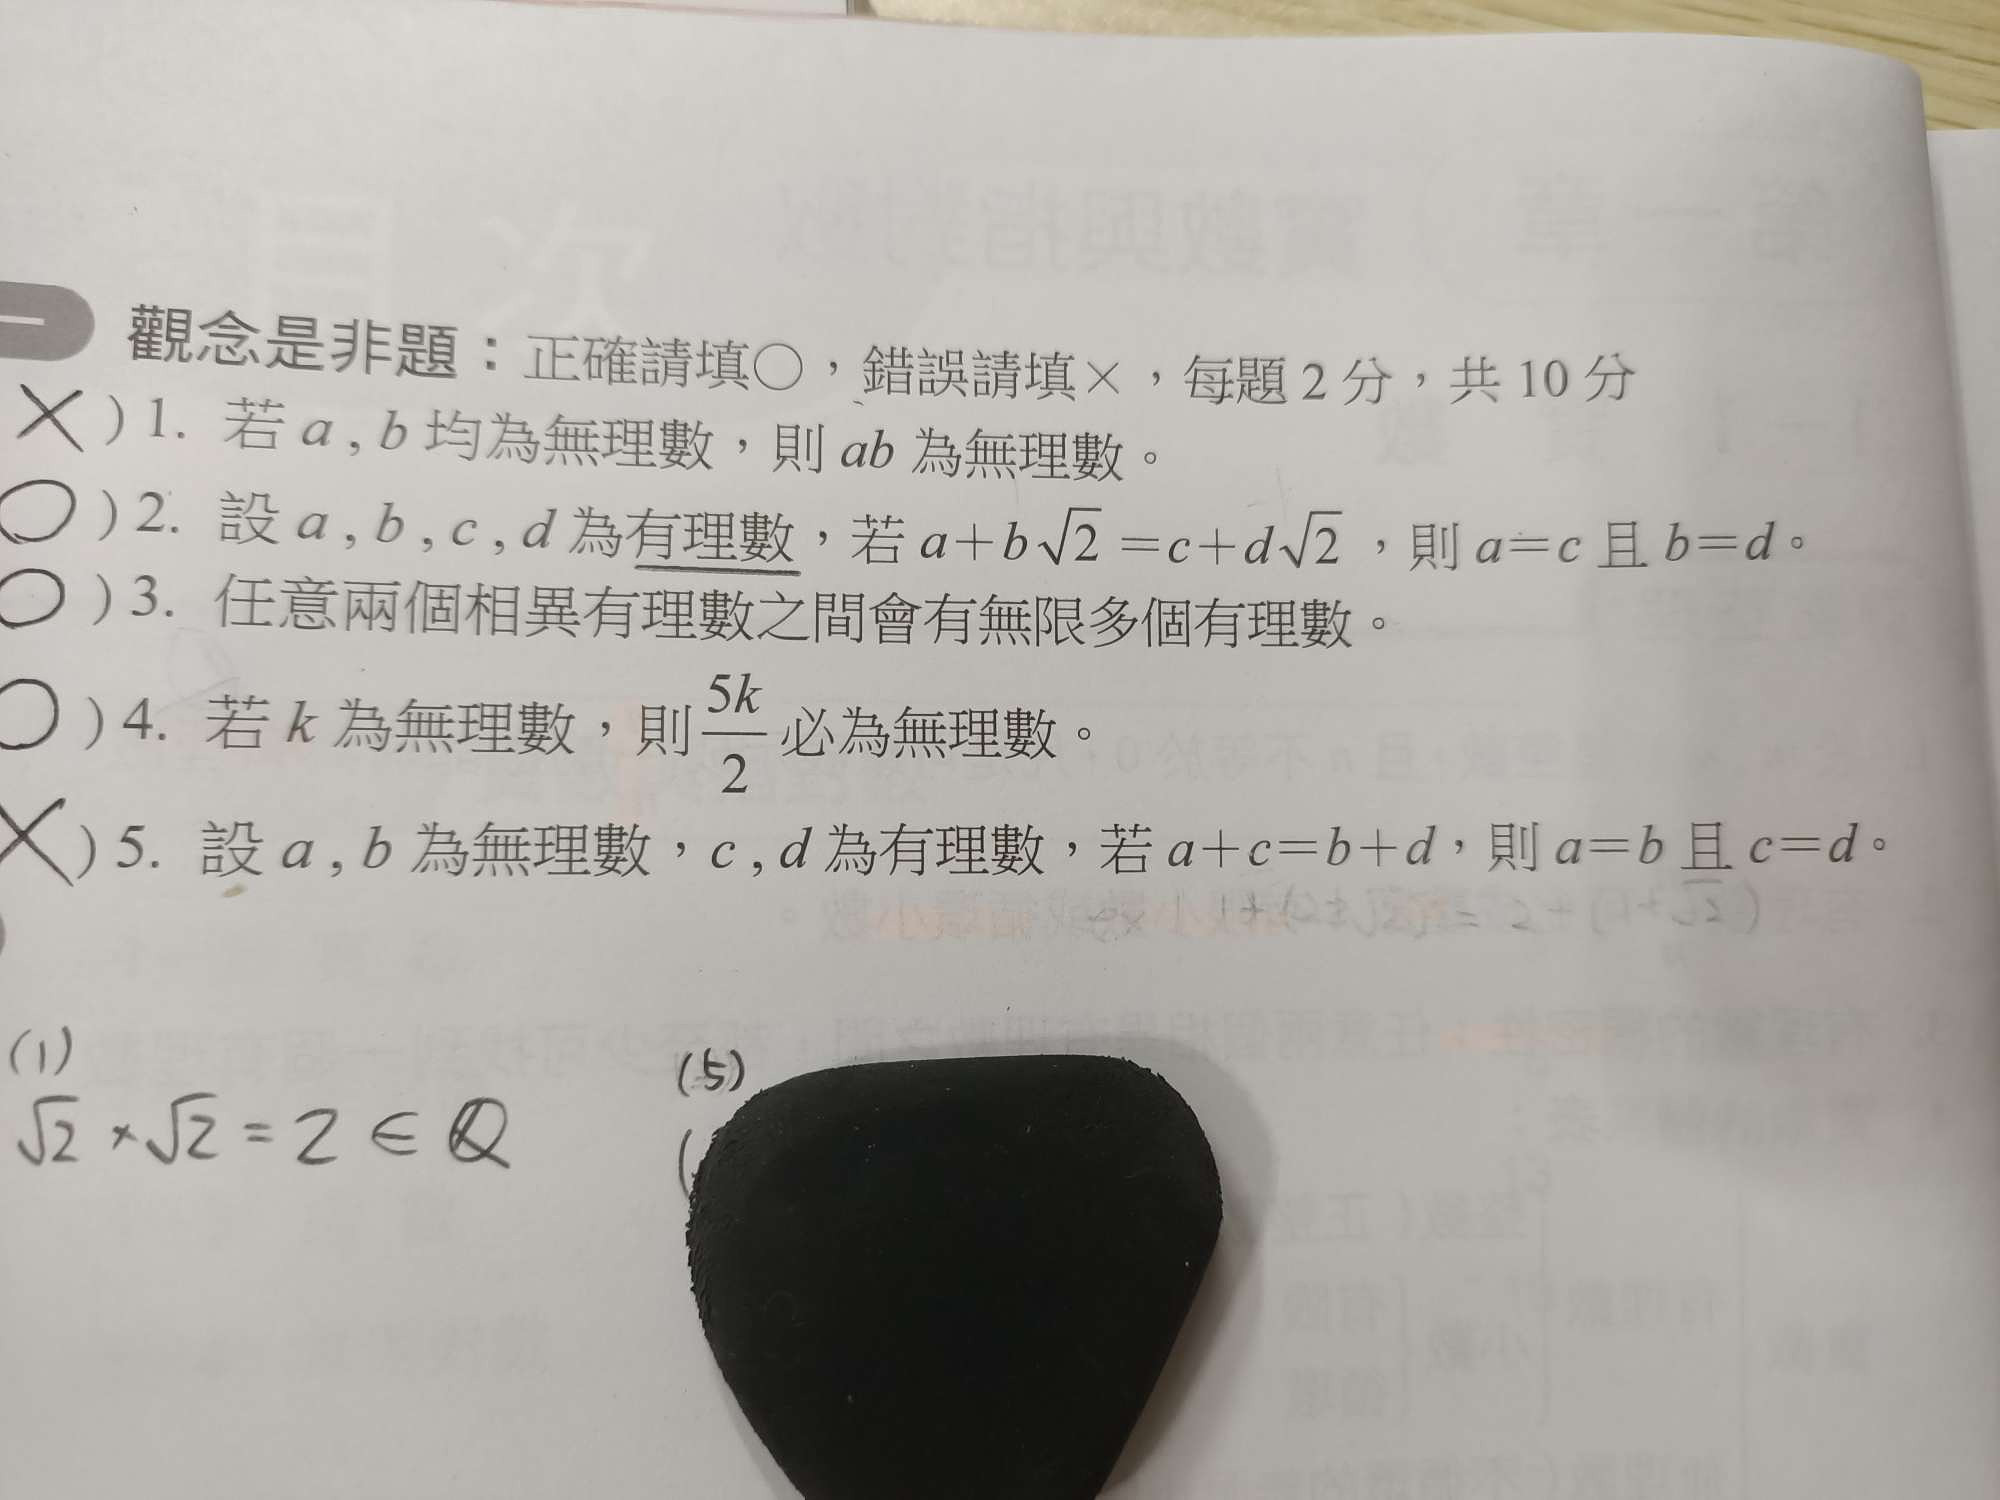 一 觀念是非題：正確請填○，錯誤請填×，每題2分，共10分
×)1. 若 a , b 均為無理數，則 ab 為無理數。
○)2. 設 a , b , c , d 為有理數，若 a+b√2 =c+d√2 ，則 a=c 且 b=d。
○)3. 任意兩個相異有理數之間會有無限多個有理數。
○)4. 若 k 為無理數，則 5k/2 必為無理數。
×)5. 設 a , b 為無理數，c , d 為有理數，若 a+c=b+d，則 a=b 且 c=d。
(1)
√2 × √2 = 2 ∈ Q
(5)
(